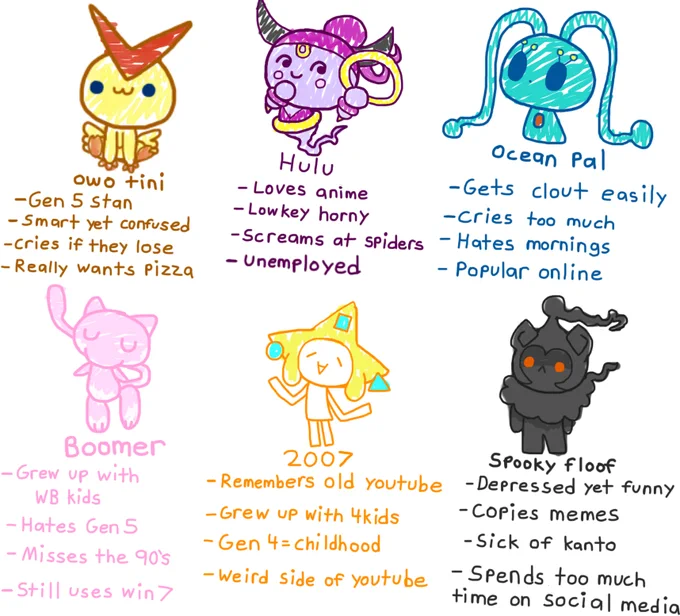 owo tini
-Gen 5 Stan
-Smart yet confused
-cries if they lose
-Really wants Pizza
Hulu
-Loves anime
-Lowkey horny
-Screams at spiders
-unemployed
Ocean Pal
-Gets clout easily
-cries too much
-Hates mornings
-Popular online
Boomer
-Grew up with
WB kids
-Hates Gen 5
-Misses the 90's
-Still uses win 7
2007
-Remembers old youtube
-Grew up with 4kids
-Gen 4=childhood
-Weird side of youtube
Spooky floof
-Depressed yet funny
-Copies memes
-Sick of kanto
-Spends too much
time on social media